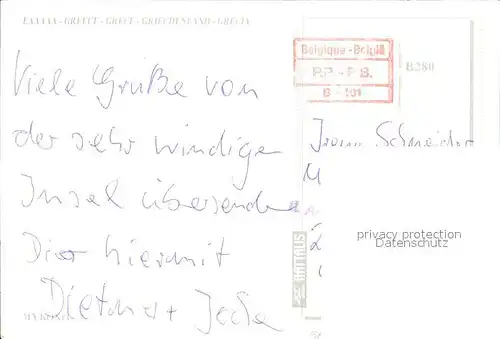 GREECE - GRECE - GRIECHENLAND - GRECIA
Viele Grüße von
der sehr windigen
Insel übersenden
Dir hiermit
Dietmar +
Belgique - België
P.P. - P.B.
B - 101
B280
Schneider
M
privacy protection
Datenschutz
HAITALIS